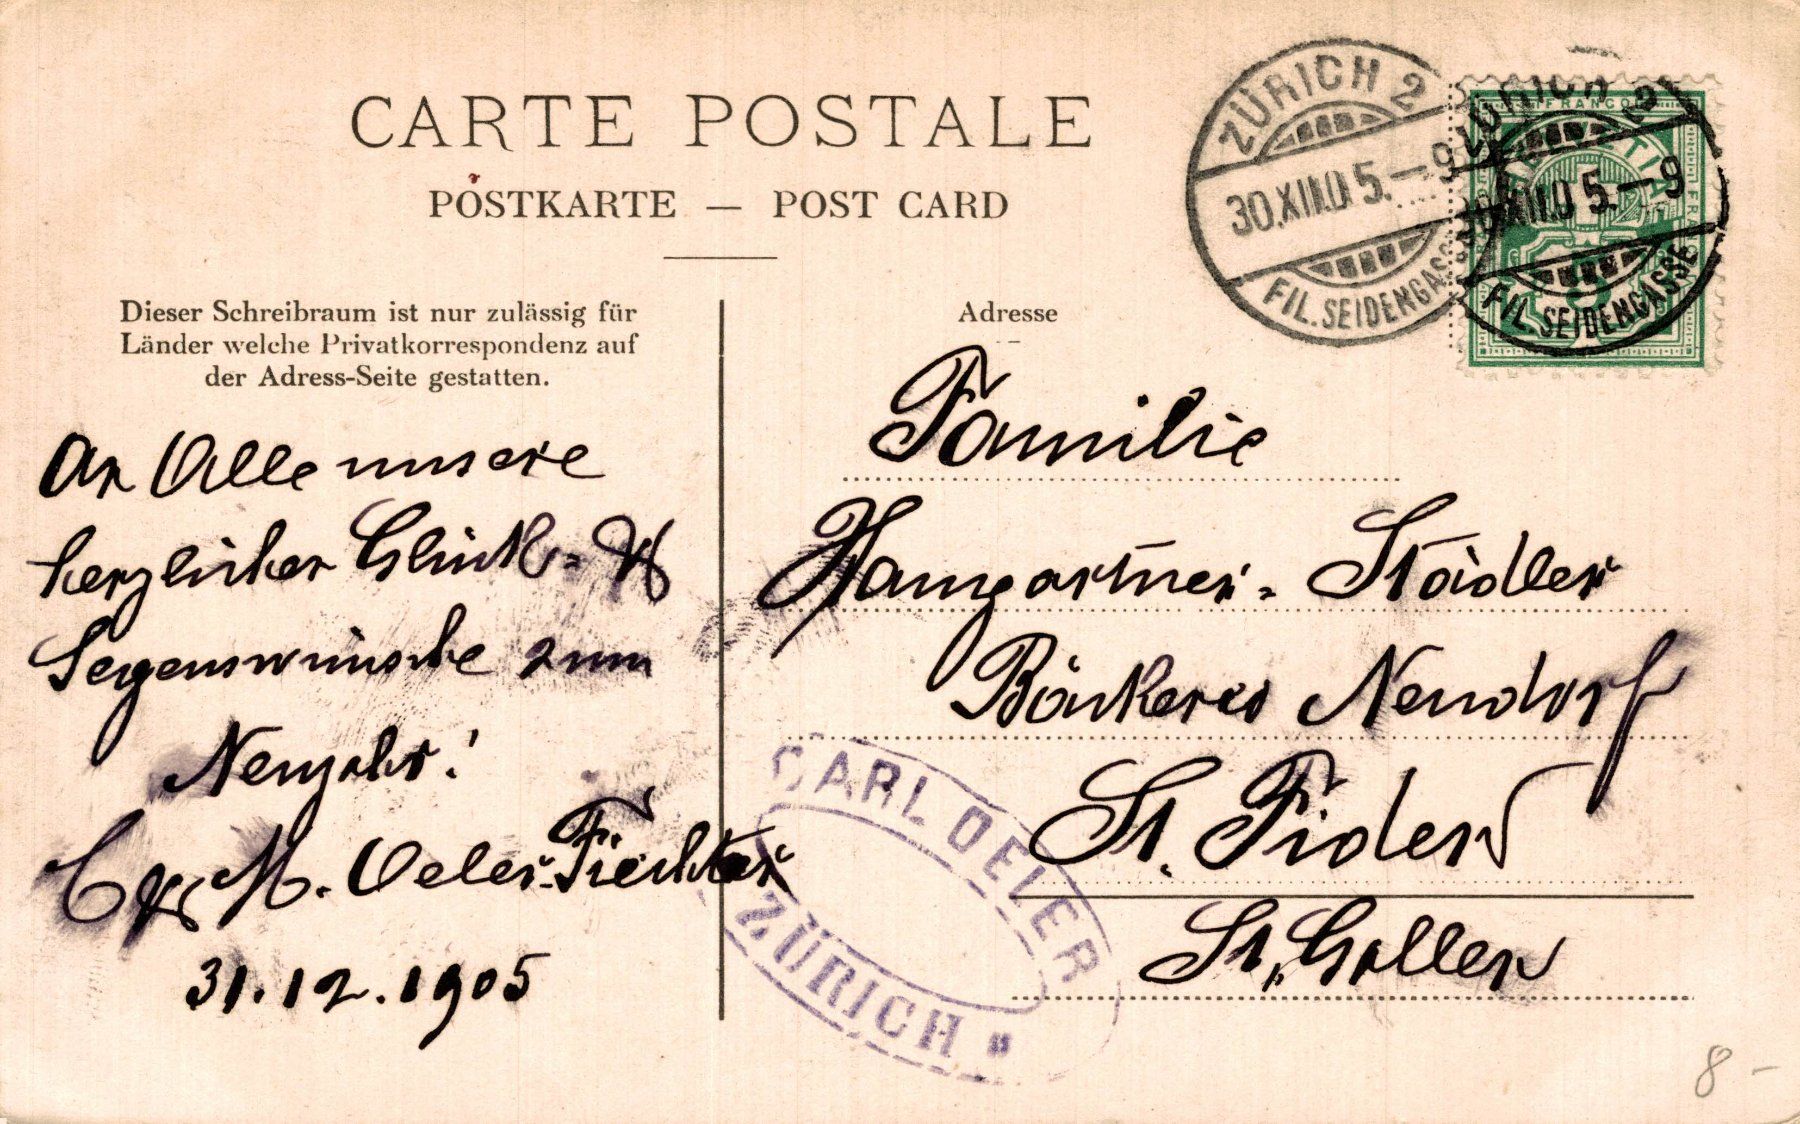 CARTE POSTALE
POSTKARTE — POST CARD
ZÜRICH 2
30.XII.05.-9
FIL. SEIDENGASSE
ZÜRICH 2
30.XII.05.-9
FIL. SEIDENGASSE
FRANCO
Dieser Schreibraum ist nur zulässig für
Länder welche Privatkorrespondenz auf
der Adress-Seite gestatten.
An Alle unsere
herzlichen Glück- &
Segenswünsche zum
Neujahr!
C & M. Oeler-Fiechter
31.12.1905
Adresse
Familie
Haumgartner-Städler
Bäckerei Neudorf
St. Fiden
St. Gallen
CARL OELER
ZÜRICH
8 -